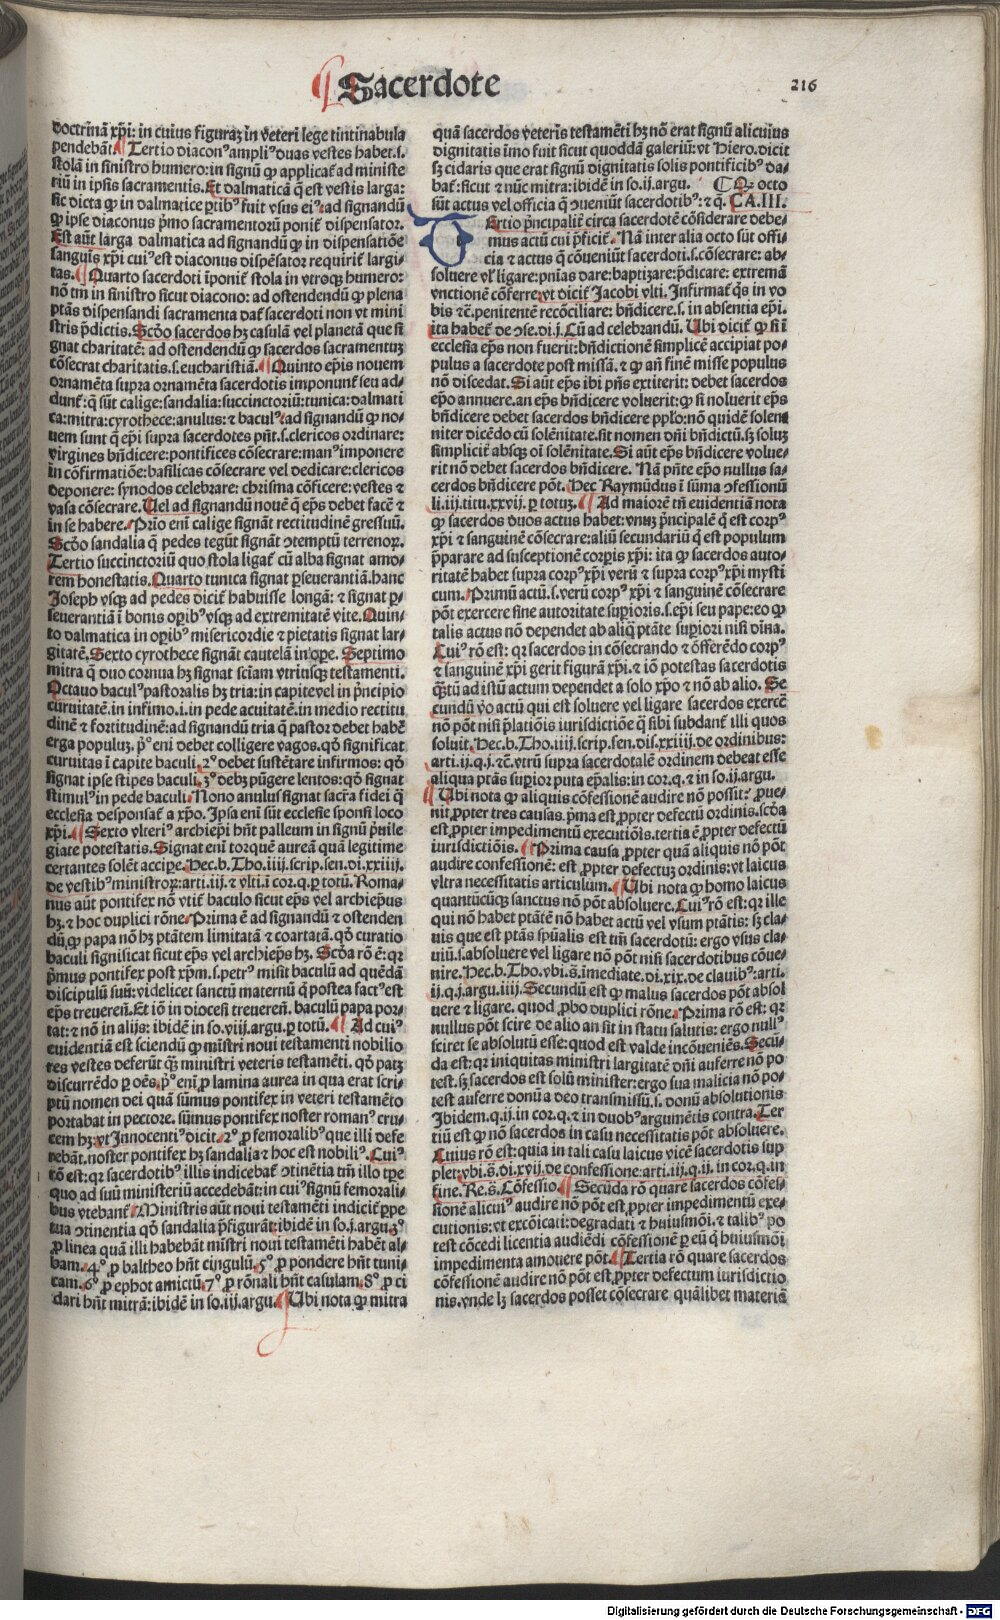 Sacerdote
216
doctrinā xp̄i: in cuius figuraꝫ in veteri lege tintinabula
pendebāt. Tertio diaconꝰ ampliꝰ duas vestes habet.s.
stolā in sinistro humero: in signū ꝙ applicat᷑ ad ministe
riū in ipsis sacramentis. Et dalmaticā q̄ est vestis larga:
sic dicta ꝙ in dalmatice ꝑtibꝰ fuit vsus eiꝰ: ad signandū
ꝙ ipse diaconus p̄mo sacramentorū ponit᷑ dispensator.
Est aūt larga dalmatica ad signandū ꝙ in dispensatiōe
sanguis xp̄i cuiꝰ est diaconus dispēsator requirit᷑ largi-
tas. Quarto sacerdoti īponit᷑ stola in vtroqꝫ humero:
nō tm̄ in sinistro sicut diacono: ad ostendendū ꝙ plena
ptās dispensandi sacramenta dat᷑ sacerdoti non vt mini
stris p̄dictis. Scd̄o sacerdos hꝫ casulā vel planetā que si
gnat charitatē: ad ostendendū ꝙ sacerdos sacramentuꝫ
cōsecrat charitatis.s.eucharistiā. Quinto ep̄is nouem
ornamēta supra ornamēta sacerdotis imponunt᷑ seu ad-
dunt᷑: q̄ sūt calige: sandalia: succinctoriū: tunica: dalmati
ca: mitra: cyrothece: anulus: ⁊ baculꝰ: ad signandū ꝙ no-
uem sunt q̄ ep̄i supra sacerdotes pn̄t.s.clericos ordinare:
virgines bn̄dicere: pontifices cōsecrare: manꝰ imponere
in cōfirmatiōe: basilicas cōsecrare vel dedicare: clericos
deponere: synodos celebrare: chrisma cōficere: vestes ⁊
vasa cōsecrare. Uel ad signandū nouē q̄ ep̄s debet facē ⁊
in se habere. Prīo enī calige signāt rectitudinē gressuū.
Scd̄o sandalia q̄ pedes tegūt signāt ↄtemptū terrenoꝝ.
Tertio succinctoriū quo stola ligat᷑ cū alba signat amo-
rem honestatis. Quarto tunica signat ꝑseuerantiā. hanc
Joseph vsqꝫ ad pedes dicit᷑ habuisse longā: ⁊ signat ꝑ-
seuerantiā ī bonis oꝑibꝰ vsqꝫ ad extremitatē vite. Quin-
to dalmatica in oꝑibꝰ misericordie ⁊ pietatis signat lar-
gitatē. Sexto cyrothece signāt cautelā in oꝑe. Septimo
mitra q̄ duo cornua hꝫ signat sciam̄ vtriusqꝫ testamenti.
Octauo baculꝰ pastoralis hꝫ tria: in capite vel in p̄ncipio
curuitatē. in infimo.i.in pede acuitatē. in medio rectitu
dinē ⁊ fortitudinē: ad signandū tria q̄ pastor debet habē
erga populuꝫ. p̄ꝰ enī debet colligere vagos. qd̄ significat
curuitas ī capite baculi. 2ꝰ debet sustētare infirmos: qd̄
signat ipse stipes baculi. 3ꝰ debꝫ pūgere lentos: qd̄ signat
stimulꝰ in pede baculi. Nono anulus signat sacr̄a fidei q̄
ecclesia despōsat᷑ a xp̄o. Ipsa enī sūt ecclesie sponsi loco
xp̄i. Sexto vlteriꝰ archiep̄i hn̄t palleum in signū p̄uile
giate potestatis. Signat enī torquē aureā quā legitime
certantes solēt accipe. Hec.b.Tho.iiij.scrip.sen.di.xxiiij.
de vestibꝰ ministroꝝ: arti.iij.⁊ vlti.ī cor.q.ꝑ totū. Roma-
nus aūt pontifex nō vtit᷑ baculo sicut ep̄s vel archiep̄us
hꝫ. ⁊ hoc duplici rōne. Prima ē ad signandū ⁊ ostenden
dū, ꝙ papa nō hꝫ ptātem limitatā ⁊ coartatā. qd̄ curatio
baculi significat sicut ep̄s vel archiep̄s hꝫ. Scd̄a rō ē: qꝛ
p̄mus pontifex post xp̄m.s.petrꝰ misit baculū ad quēdā
discipulū suū: videlicet sanctū maternū q̄ postea factꝰ est
ep̄s treueren̄. Et iō in diocesi treueren̄. baculū papa por-
tat: ⁊ nō in alijs: ibidē in so.viij.argu.ꝑ totū. Ad cuiꝰ
euidentiā est sciendū ꝙ mīstri noui testamenti nobilio
res vestes deferūt qꝫ ministri veteris testamēti. qd̄ patꝫ
discurrēdo ꝑ oēs. p̄ꝰ enī ꝓ lamina aurea in qua erat scri-
ptū nomen dei quā sūmus pontifex in veteri testamēto
portabat in pectore. sūmus pontifex noster romanꝰ cru-
cem hꝫ: vt Innocentiꝰ dicit. 2ꝰ ꝓ femoralibꝰ que illi defe
rebāt. noster pontifex hꝫ sandalia ⁊ hoc est nobiliꝰ. Cuiꝰ
rō est: qꝛ sacerdotibꝰ illis indicebat᷑ ↄtinētia tm̄ illo tp̄e
quo ad suū ministeriū accedebāt: in cuiꝰ signū femorali-
bus vtebant᷑. Ministris aūt noui testamēti indicit᷑ ꝑpe
tua ↄtinentia qd̄ sandalia p̄figurāt: ibidē in so.j.argu. 3ꝰ
ꝓ linea quā illi habebāt mīstri noui testamēti habēt al-
bam. 4ꝰ ꝓ baltheo hn̄t cingulū. 5ꝰ ꝓ pondere hn̄t tuni-
cam. 6ꝰ ꝓ ephot amictū. 7ꝰ ꝓ rōnali hn̄t casulam. 8ꝰ ꝓ ci
dari hn̄t mitrā: ibidē in so.iij.argu. Ubi nota ꝙ mitra
quā sacerdos veteris testamēti hꝫ nō erat signū alicuius
dignitatis īmo fuit sicut quoddā galeriū: vt Hiero.dicit
sꝫ cidaris que erat signū dignitatis solis pontificibꝰ da-
bat᷑: sicut ⁊ nūc mitra: ibidē in so.ij.argu. Qꝛ octo
sūt actus vel officia q̄ ↄueniūt sacerdotibꝰ: ⁊ q̄. CA.III.
TErtio p̄ncipalit᷑ circa sacerdotē cōsiderare debe-
mus actū cui p̄ficit᷑. Nā inter alia octo sūt offi-
cia ⁊ actus q̄ cōueniūt sacerdoti.s.cōsecrare: ab-
soluere vl̓ ligare: pn̄ias dare: baptizare: p̄dicare: extremā
vnctionē cōferre: vt dicit᷑ Jacobi vlti. Infirmat᷑ q̄s in vo
bis ⁊c̄. penitentē recōciliare: bn̄dicere.s. in absentia ep̄i.
ita habet᷑ de ↄse.di.j. Cū ad celebrandū. Ubi dicit᷑ ꝙ si ī
ecclesia ep̄s non fuerit: bn̄dictionē simplicē accipiat po-
pulus a sacerdote post missā. ⁊ ꝙ an̄ finē misse populus
nō discedat. Si aūt ep̄s ibi p̄ns extiterit: debet sacerdos
ep̄o annuere. an ep̄s bn̄dicere voluerit: ꝙ si noluerit ep̄s
bn̄dicere debet sacerdos bn̄dicere pp̄lo: nō quidē solen
niter dicēdo cū solēnitate. sit nomen dn̄i bn̄dictū. sꝫ soluꝫ
simplicit᷑ absqꝫ oī solēnitate. Si aūt ep̄s bn̄dicere volue-
rit nō debet sacerdos bn̄dicere. Nā pn̄te ep̄o nullus sa-
cerdos bn̄dicere pōt. Hec Raymūdus ī sūma ↄfessionū
li.iij.titu.xxvij.ꝑ totuꝫ. Ad maiorē tn̄ euidentiā nota
ꝙ sacerdos duos actus habet: vnuꝫ p̄ncipalē q̄ est corpꝰ
xp̄i ⁊ sanguinē cōsecrare: aliū secundariū q̄ est populum
p̄parare ad susceptionē corꝑis xp̄i: ita ꝙ sacerdos auto-
ritatē habet supra corpꝰ xp̄i verū ⁊ supra corpꝰ xp̄i mysti
cum. Primū actū.s.verū corpꝰ xp̄i ⁊ sanguinē cōsecrare
pōt exercere sine autoritate suꝑioris.s.ep̄i seu pape: eo ꝙ
talis actus nō dependet ab aliq̄ ptāte suꝑiori nisi diīna.
Cuiꝰ rō est: qꝛ sacerdos in cōsecrando ⁊ offerēdo corpꝰ
⁊ sanguinē xp̄i gerit figurā xp̄i. ⁊ iō potestas sacerdotis
qꝫtū ad istū actum dependet a solo xp̄o ⁊ nō ab alio. Se
cundū v̊o actū qui est soluere vel ligare sacerdos exercē
nō pōt nisi p̄latiōis iurisdictiōe q̄ sibi subdant᷑ illi quos
soluit. Hec.b.Tho.iiij.scrip.sen.dis.xxiiij.de ordinibus:
arti.ij.q.j.⁊c̄. vtrū supra sacerdotalē ordinem debeat esse
aliqua ptās suꝑior puta ep̄alis: in cor.q.⁊ in so.ij.argu.
Ubi nota ꝙ aliquis cōfessionē audire nō possit: ꝓue-
nit ꝓpter tres causas. p̄ma est ꝓpter defectū ordinis. scd̄a
est ꝓpter impedimentū executiōis. tertia ē ꝓpter defectū
iurisdictiōis. Prima causa ꝓpter quā aliquis nō pōt
audire confessionē: est ꝓpter defectuꝫ ordinis: vt laicus
vltra necessitatis articulum. Ubi nota ꝙ homo laicus
quantūcūqꝫ sanctus nō pōt absoluere. Cuiꝰ rō est: qꝛ ille
qui nō habet ptātē nō habet actū vel vsum ptātis: sꝫ cla-
uis que est ptās spūalis est tm̄ sacerdotū: ergo vsus cla-
uiū.s.absoluere vel ligare nō pōt nisi sacerdotibus cōue-
nire. Hec.b.Tho.vbi.s̄.īmediate.di.xix.de clauibꝰ: arti.
ij.q.j.argu.iiij. Secundū est ꝙ malus sacerdos pōt absol
uere ⁊ ligare. quod ꝓbo duplici rōne. Prima rō est: qꝛ
nullus pōt scire de alio an sit in statu salutis: ergo nullꝰ
sciret se absolutū esse: quod est valde incōueniēs. Secū-
da est: qꝛ iniquitas ministri largitatē dn̄i auferre nō po
test. sꝫ sacerdos est solū minister: ergo sua malicia nō po-
test auferre donū a deo transmissū.s.donū absolutionis
Ibidem.q.ij.in cor.q.⁊ in duobꝰ argumētis contra. Ter
tiū est ꝙ nō sacerdos in casu necessitatis pōt absoluere.
Cuius rō est: quia in tali casu laicus vicē sacerdotis sup
plet: vbi.s̄.di.xvij.de confessione: arti.iij.q.ij. in cor.q.in
fine. Re.s̄. Cōfessio. Secūda rō quare sacerdos cōfes-
sionē alicuiꝰ audire nō pōt est ꝓpter impedimentū exe-
cutionis: vt excōicati: degradati ⁊ huiusmōi. ⁊ talibꝰ po
test cōcedi licentia audiēdi cōfessionē ꝑ eū q̄ huiusmōi
impedimenta amouere pōt. Tertia rō quare sacerdos
cōfessionē audire nō pōt est ꝓpter defectum iurisdictio
nis. vnde lꝫ sacerdos posset cōsecrare quālibet materiā
Digitalisierung gefördert durch die Deutsche Forschungsgemeinschaft - DFG